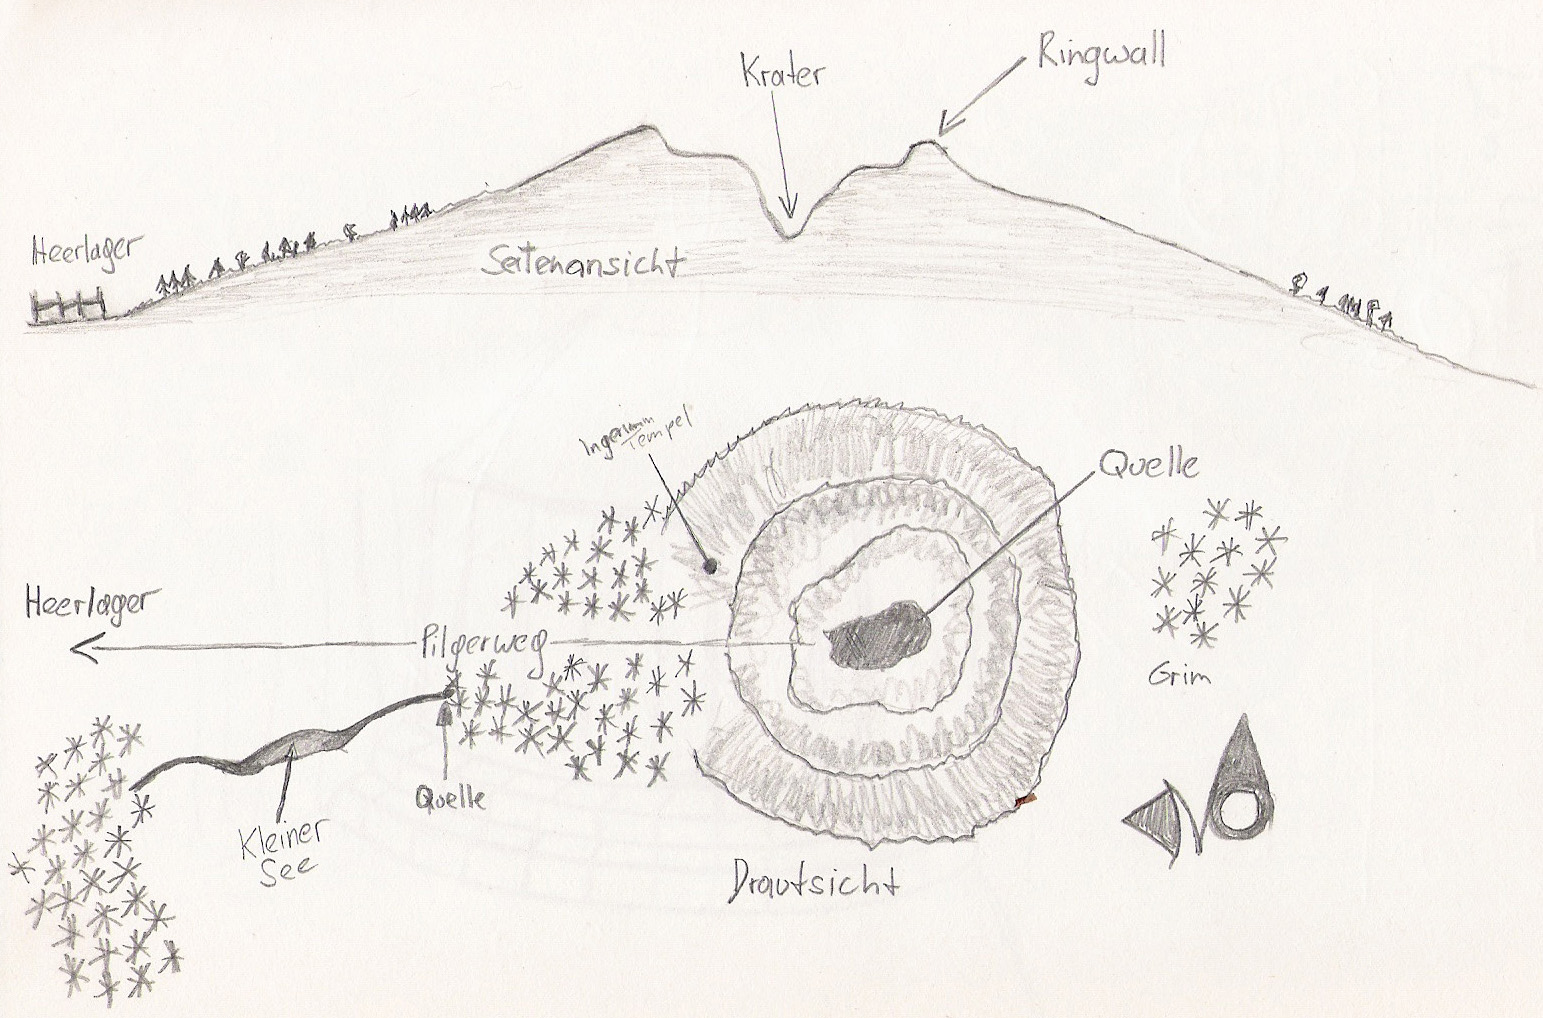 Ringwall
Krater
Heerlager
Seitenansicht
Ingerimm
Tempel
Quelle
Heerlager
Pilgerweg
Grim
Quelle
Kleiner
See
Drautsicht
N